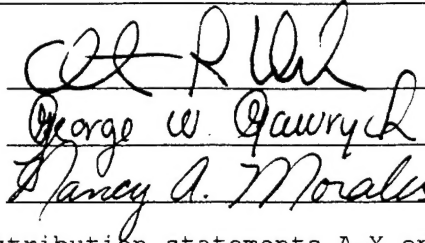 R
George W. Gawrych
Nancy A. Morales
tribution statements A X or